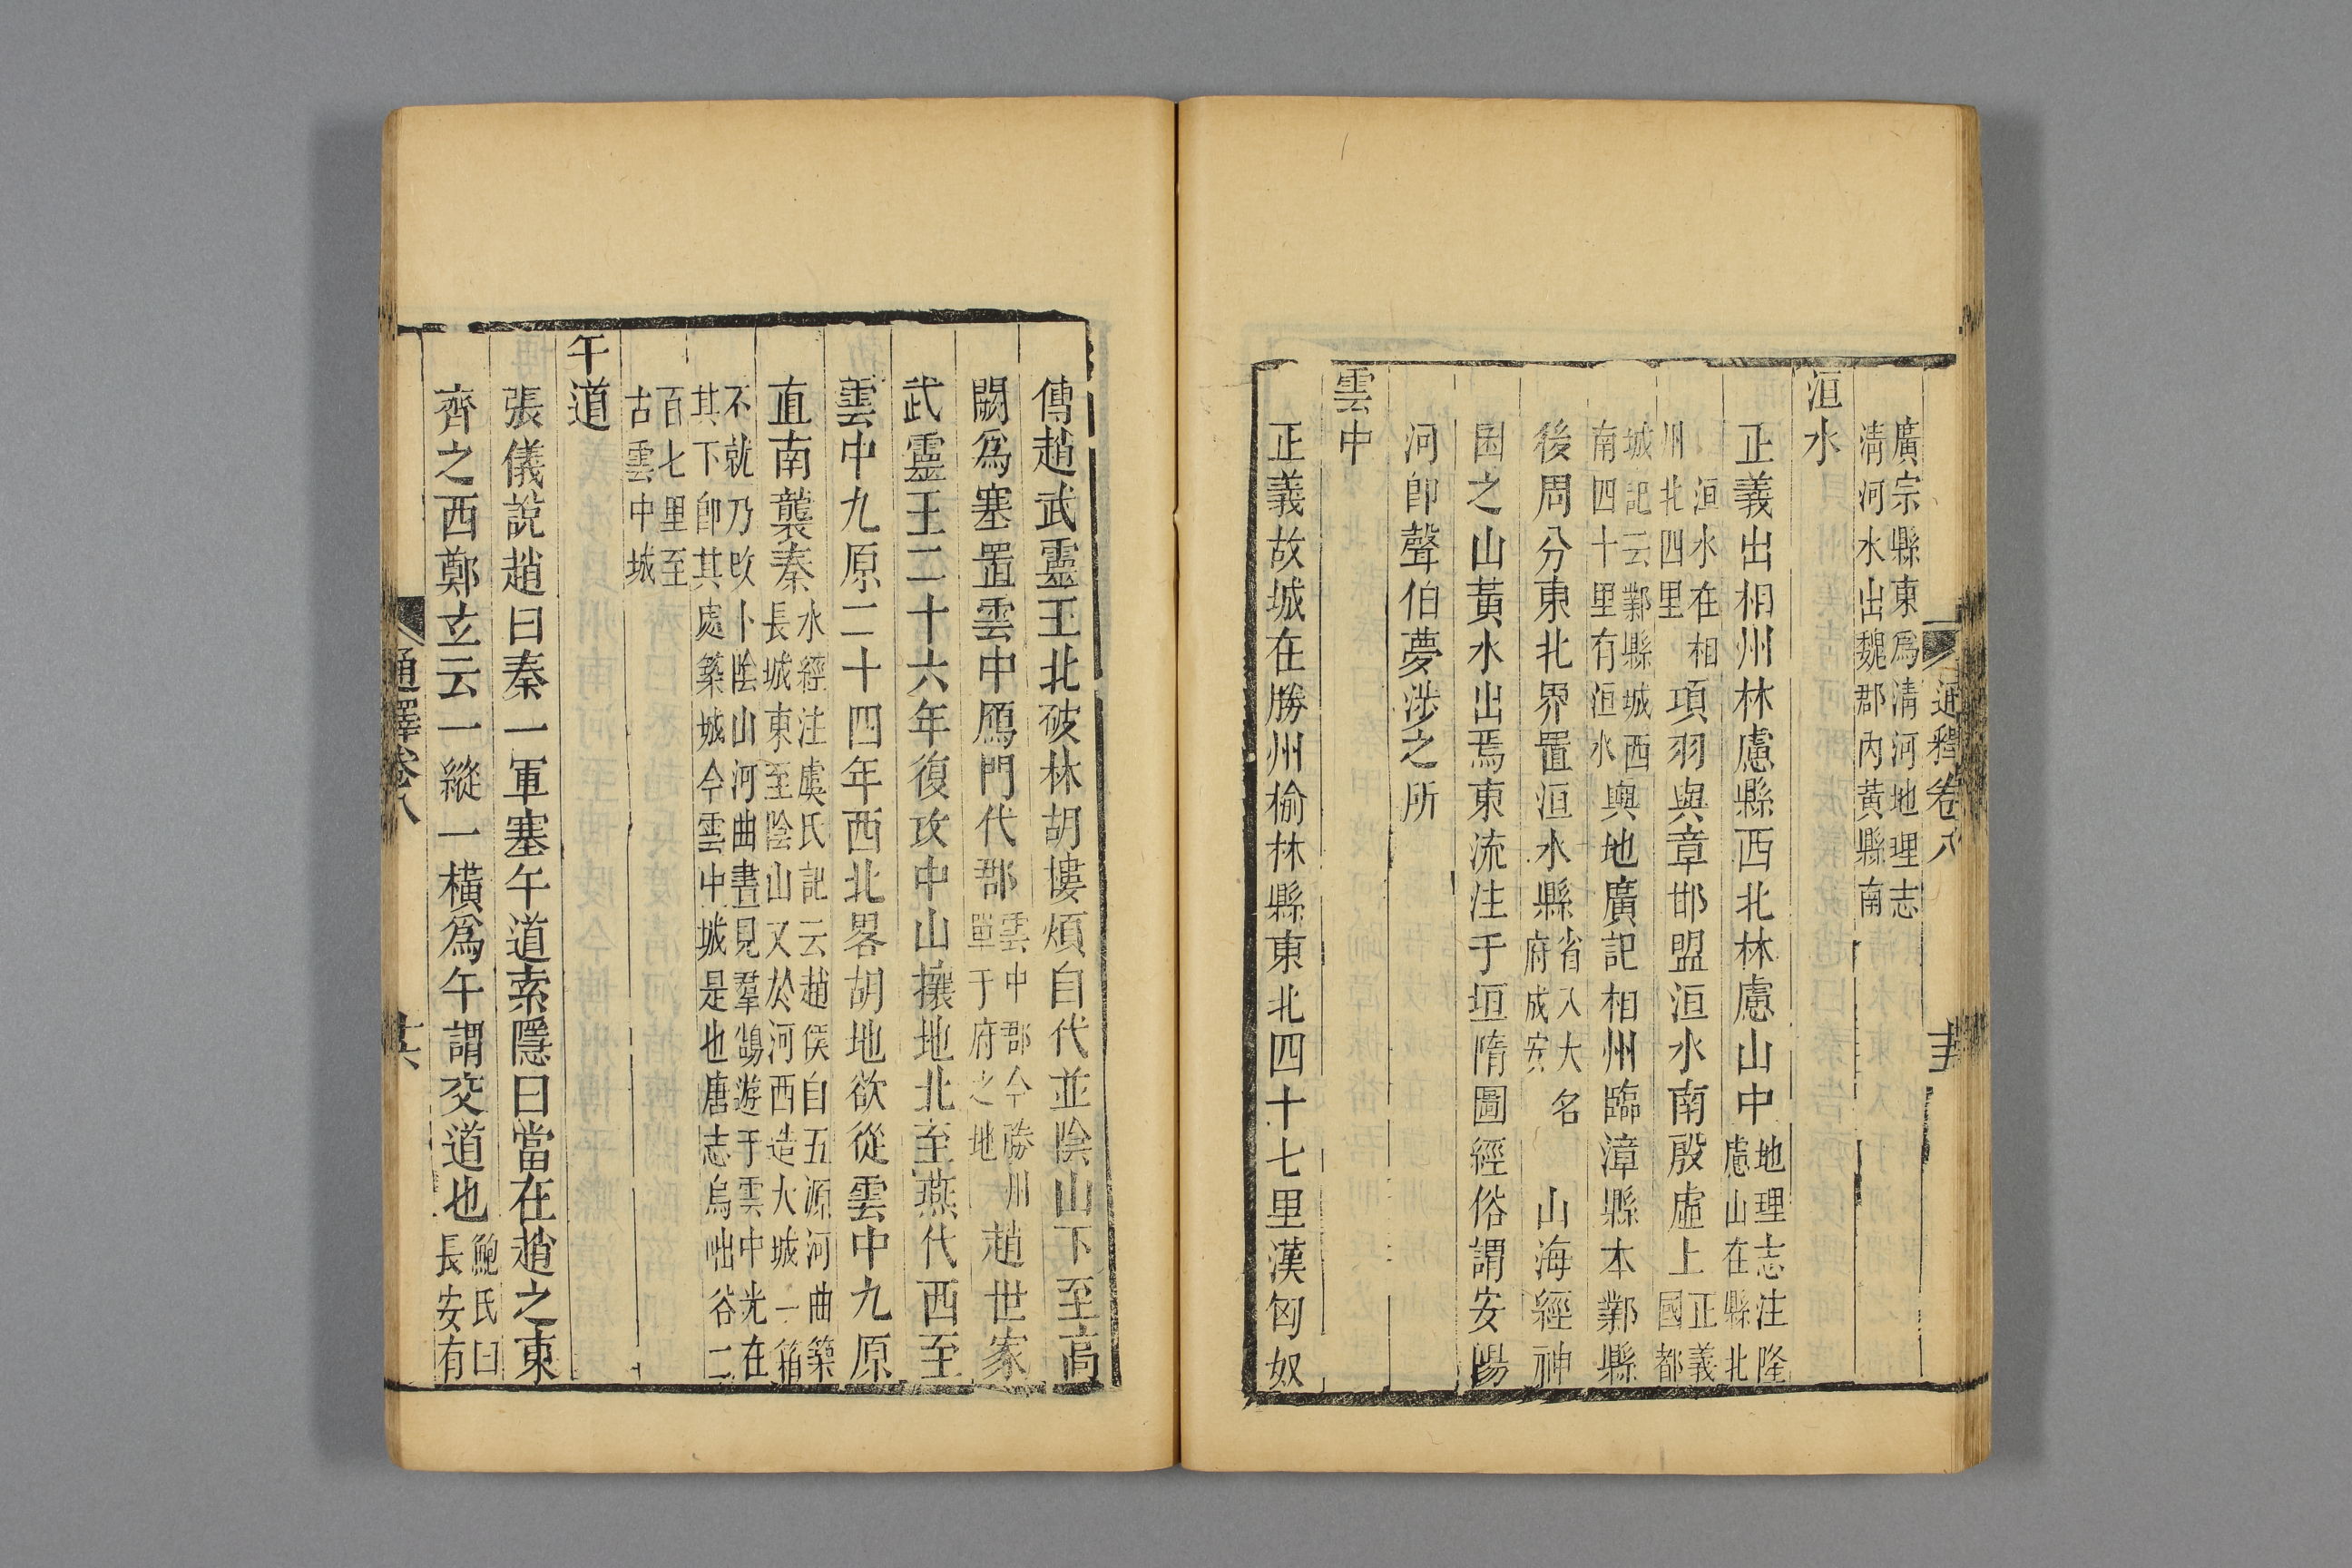 通釋卷八
廣宗縣東爲淸河地理志
淸河水出魏郡內黃縣南
洹水
正義出相州林慮縣西北林慮山中地理志注隆
慮山在縣北
洹水在相
州北四里項羽與章邯盟洹水南殷虛上正義
國都
城記云鄴縣城西
南四十里有洹水輿地廣記相州臨漳縣本鄴縣
後周分東北界置洹水縣省入大名
府成安山海經神
囷之山黃水出焉東流注于垣隋圖經俗謂安陽
河卽聲伯夢涉之所
雲中
正義故城在勝州榆林縣東北四十七里漢匈奴
傳趙武靈王北破林胡摟煩自代並陰山下至高
闕爲塞置雲中鴈門代郡雲中郡今勝州
單于府之地趙世家
武靈王二十六年復攻中山攘地北至燕代西至
雲中九原二十四年西北畧胡地欲從雲中九原
直南襲秦水經注虞氏記云趙侯自五源河曲築
長城東至陰山又於河西造大城一箱
不就乃改卜陰山河曲晝見羣鵠遊于雲中光在
其下卽其處築城今雲中城是也唐志烏咄谷二
百七里至
古雲中城
午道
張儀說趙曰秦一軍塞午道索隱曰當在趙之東
齊之西鄭玄云一縱一橫爲午謂交道也鮑氏曰
長安有
通釋卷八